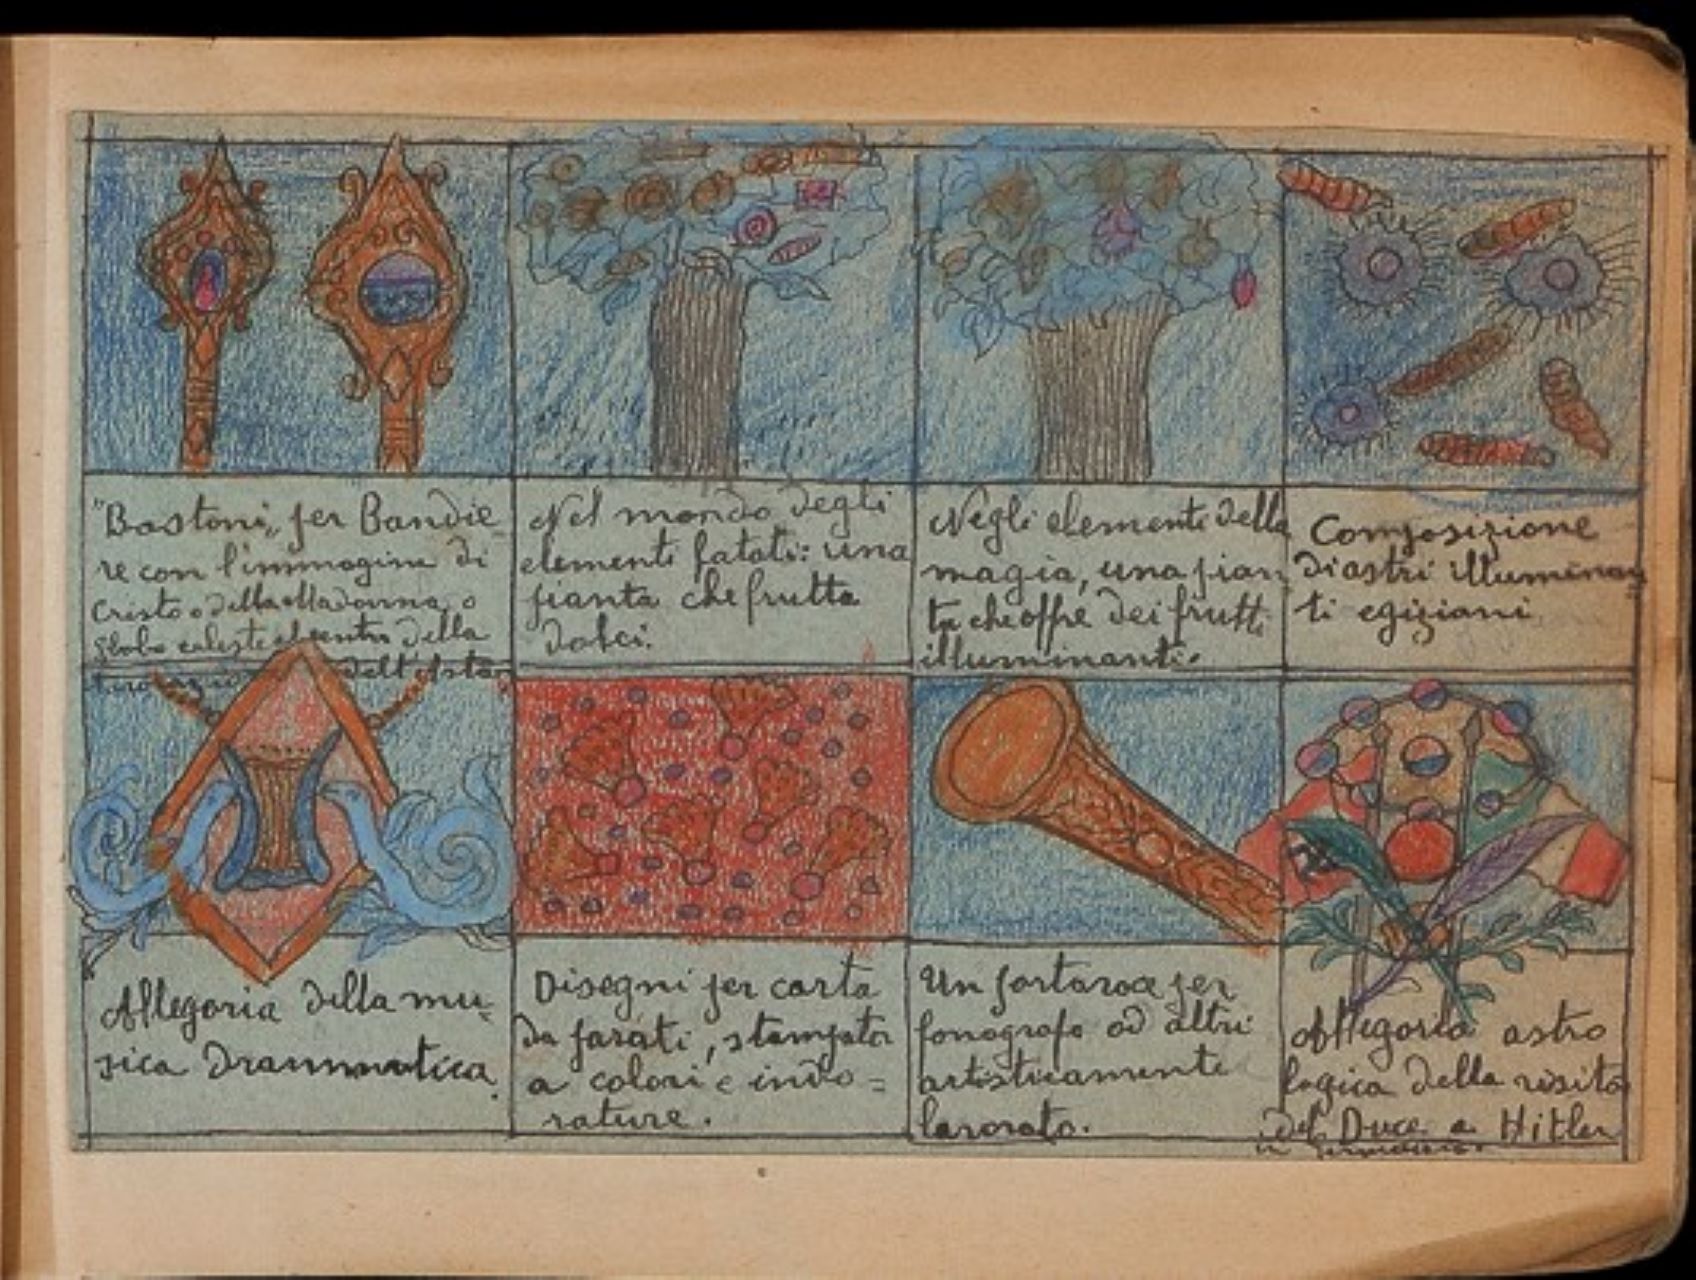 "Bastoni" per Bandie
re con l'immagine di
Cristo o della Madonna, o
globo celeste al centro della
dell'Asta
Nel mondo degli
elementi fatati: una
pianta che frutta
dolci.
Negli elementi della
magia, una pian
ta che offre dei frutti
illuminanti.
Composizione
di astri illuminan
ti egiziani
Allegoria della mu-
sica drammatica.
Disegni per carta
da parati, stampata
a colori e indo=
rature.
Un portavoce per
fonografo od altri
artisticamente
lavorato.
Allegoria astro
logica della visita
del Duce a Hitler
in Germania.